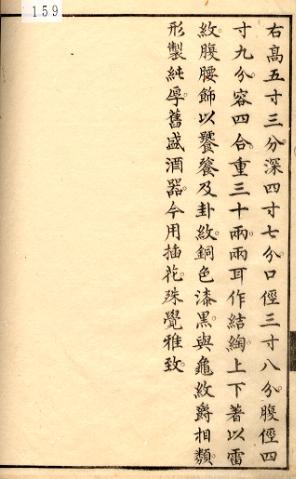 159
右高五寸三分深四寸七分口徑三寸八分腹徑四
寸九分容四合重三十兩兩耳作結絢上下著以雷
紋腹腰飾以饕餮及卦紋銅色漆黑與龜紋爵相類
形製純厚舊盛酒器今用插花殊覺雅致